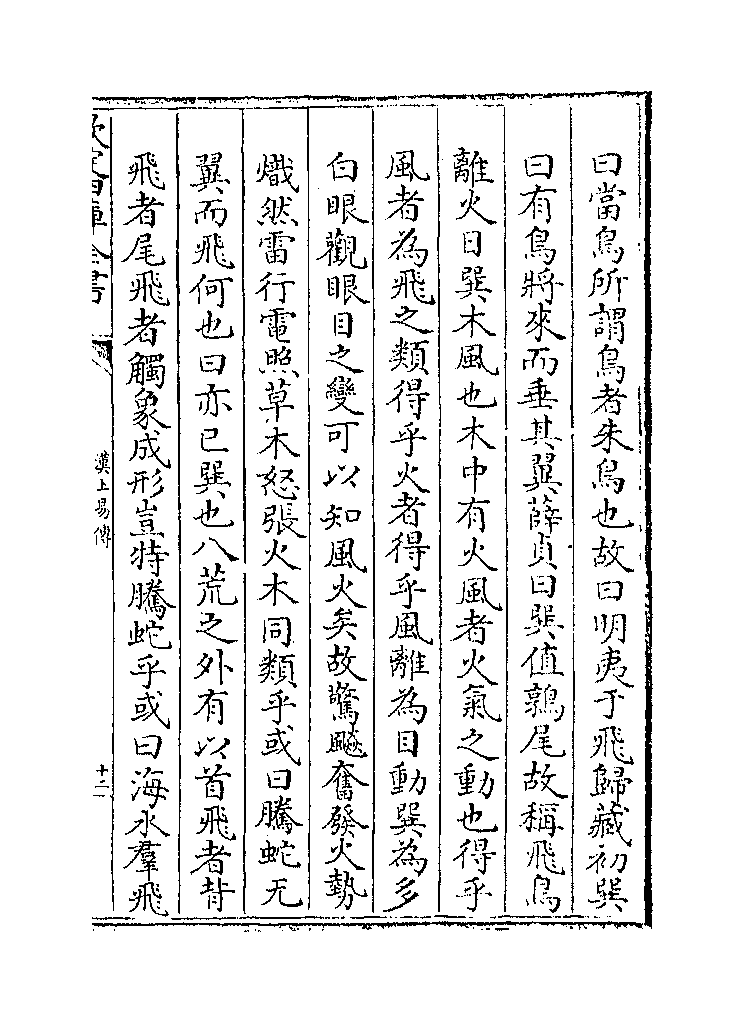 曰當鳥所謂鳥者朱鳥也故曰明夷于飛歸藏初巽
曰有鳥將來而垂其翼薛貞曰巽值鶉尾故稱飛鳥
離火日巽木風也木中有火風者火氣之動也得乎
風者為飛之類得乎火者得乎風離為目動巽為多
白眼觀眼目之變可以知風火矣故驚飈奮發火勢
熾然雷行電照草木怒張火木同類乎或曰騰蛇无
翼而飛何也曰亦巳巽也八荒之外有以首飛者背
飛者尾飛者觸象成形豈特騰蛇乎或曰海水羣飛
欽定四庫全書
漢上易傳
十二